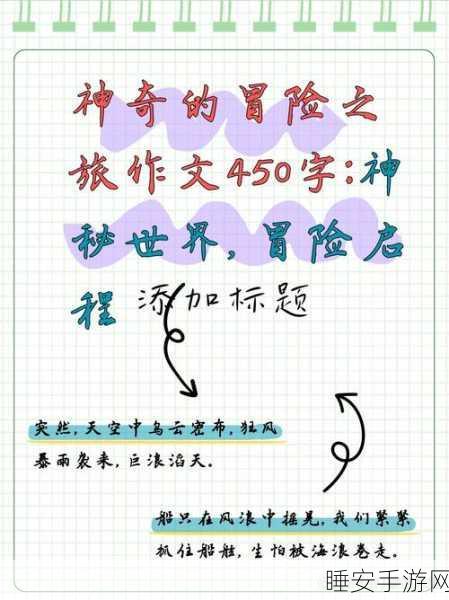 神奇的冒险之
旅作文450字:神
秘世界,冒险启
程
添加标题
突然,天空中乌云密布,狂风
暴雨袭来,巨浪滔天。
船只在风浪中摇晃,我们紧紧
抓住船舷,生怕被海浪卷走。
睡安手游网